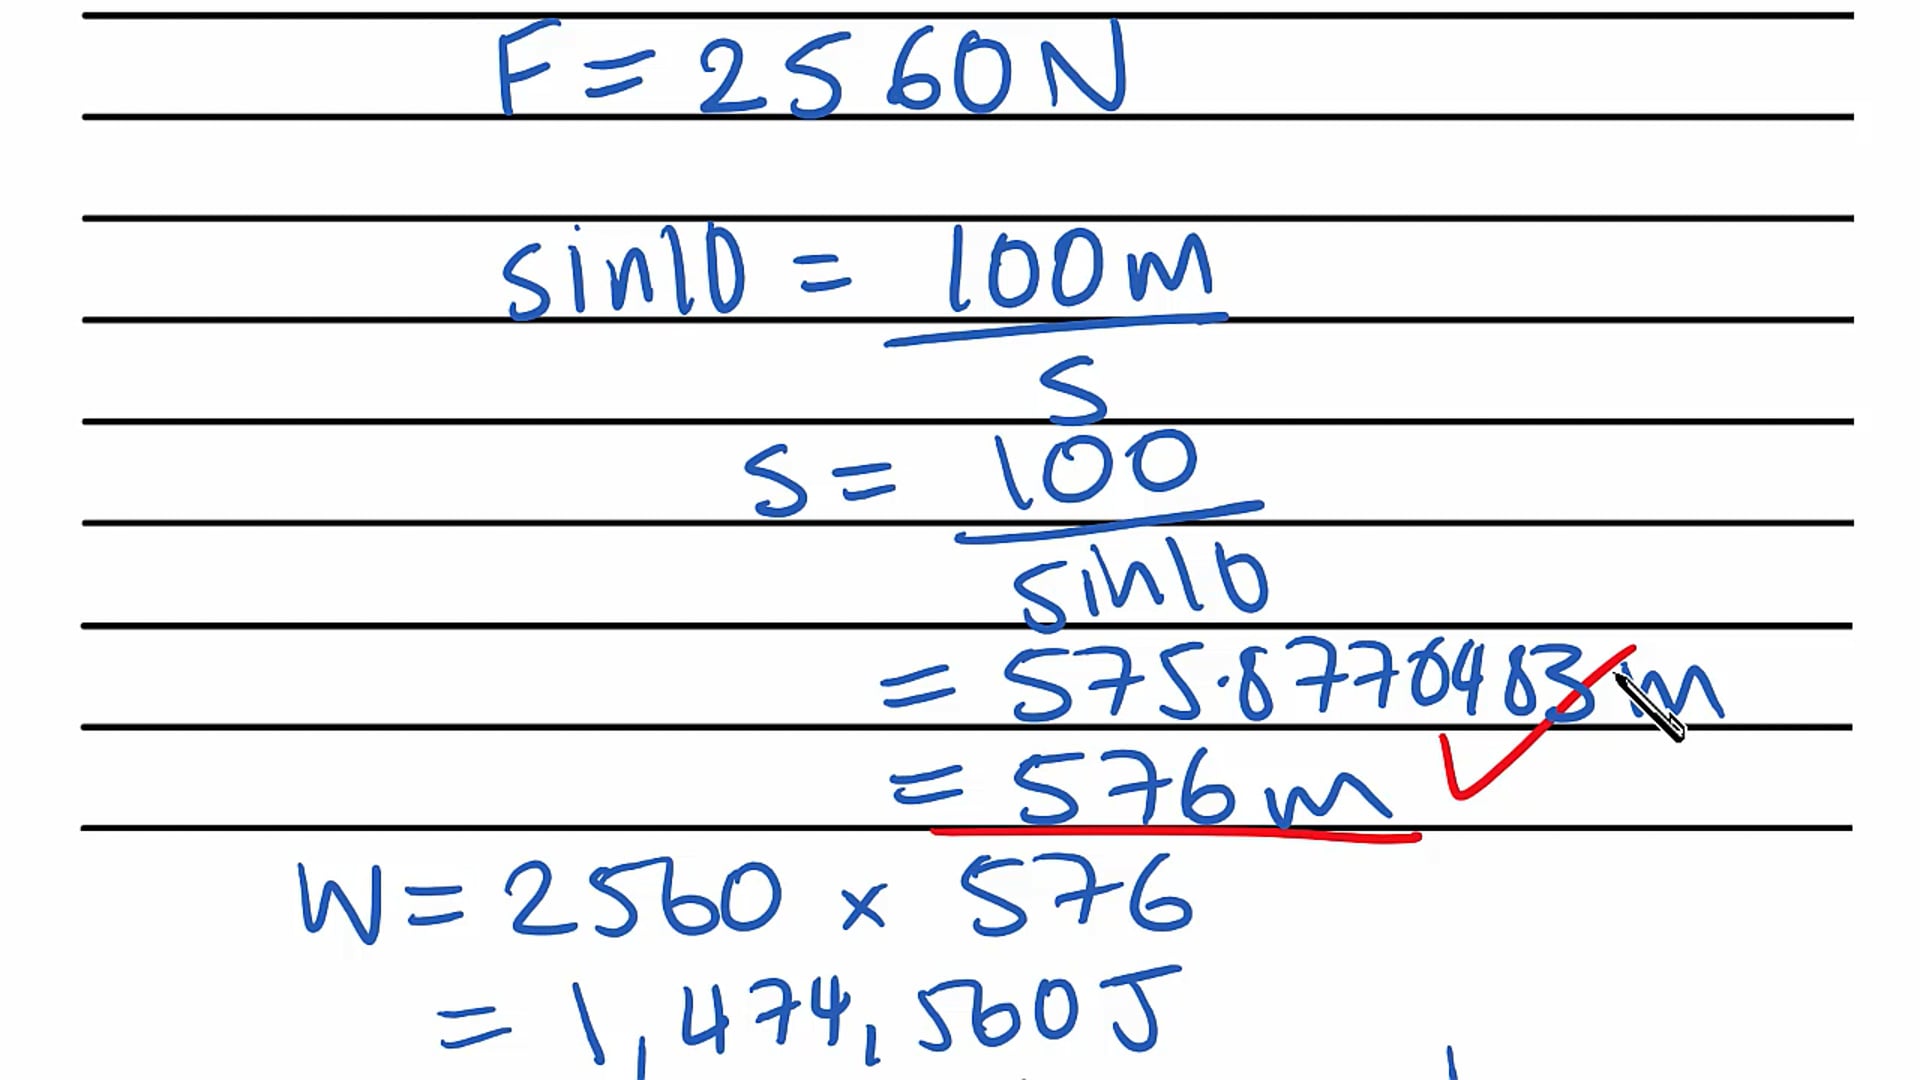 F = 2560N
sin10 = 100m
s
s = 100
sin10
= 575.8770483m
= 576m
W = 2560 × 576
= 1,474,560J